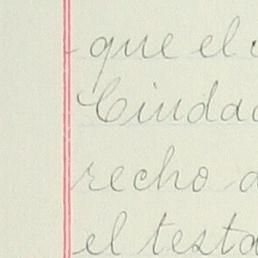 que el
Ciudad
recho
el testa